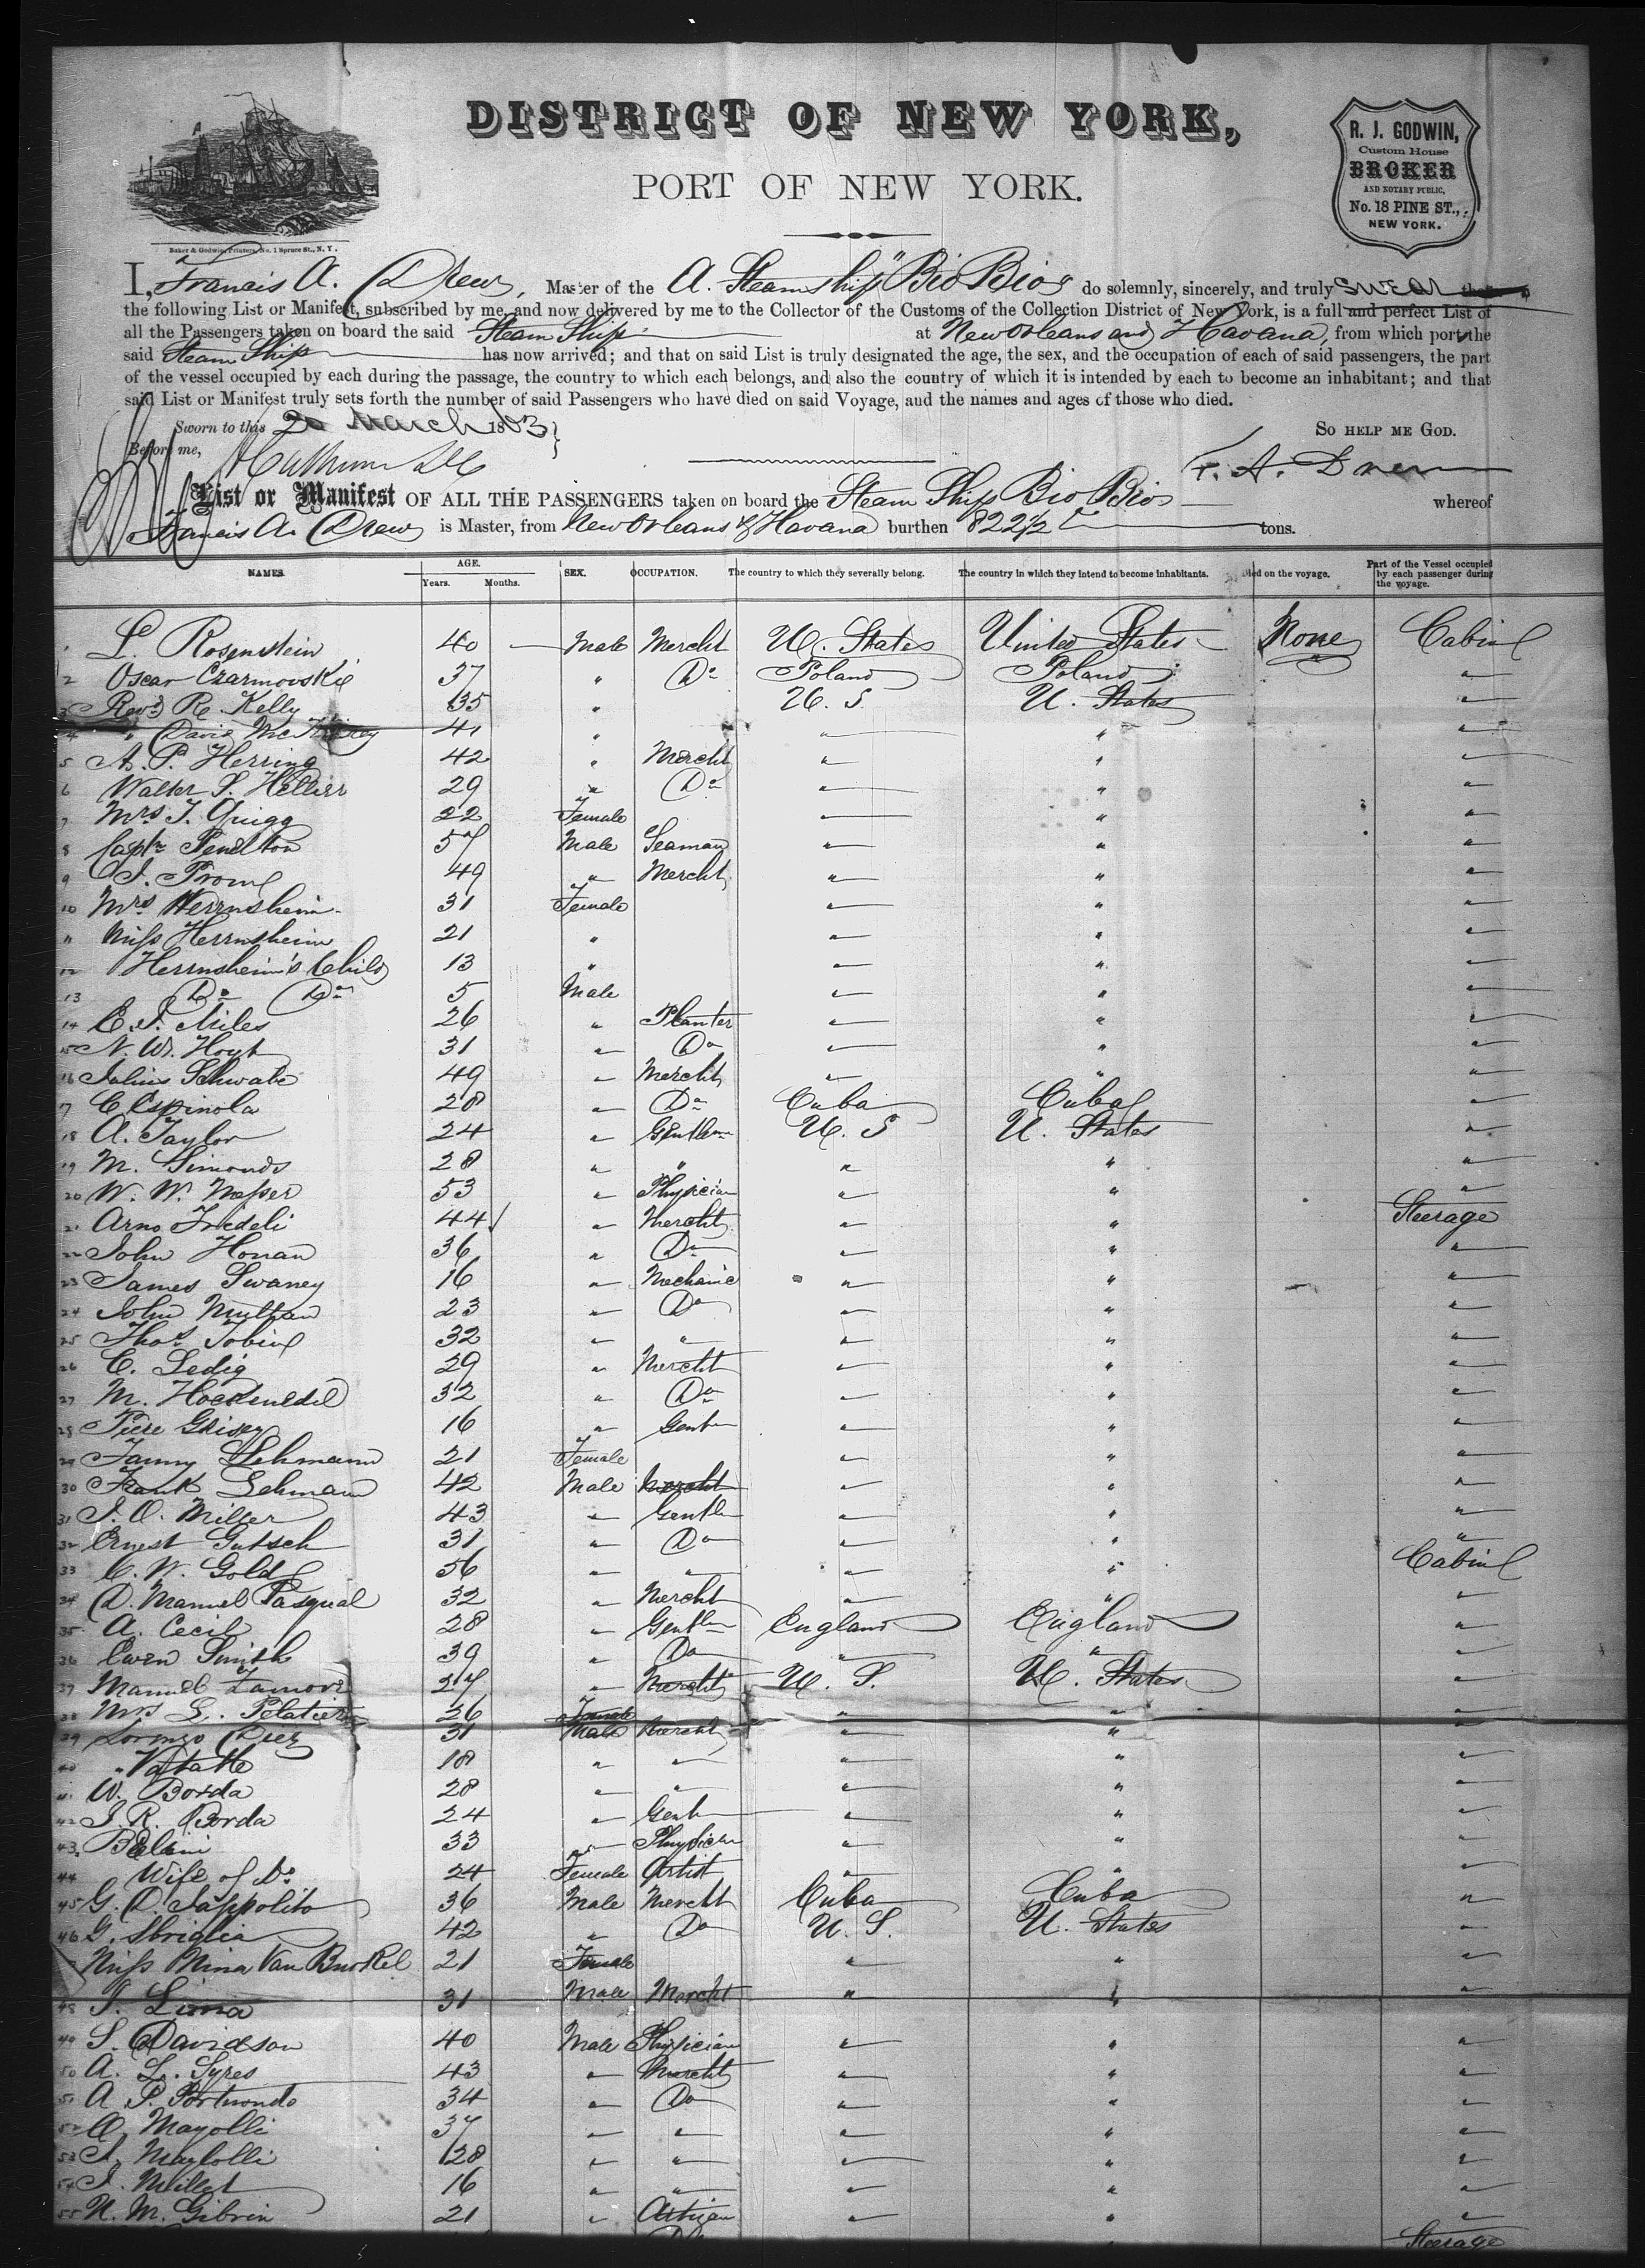 DISTRICT OF NEW YORK,
PORT OF NEW YORK.
R. J. GODWIN,
Custom House
BROKER
AND NOTARY PUBLIC,
No. 18 PINE ST.,
NEW YORK.
Baker & Godwin, Printers, No. 1 Spruce St., N. Y.
I, Francis A. Drew, Master of the A. Steam Ship "Bio Bio" do solemnly, sincerely, and truly swear that
the following List or Manifest, subscribed by me, and now delivered by me to the Collector of the Customs of the Collection District of New York, is a full and perfect List of
all the Passengers taken on board the said Steam Ship at New Orleans and Havana, from which port the
said Steam Ship has now arrived; and that on said List is truly designated the age, the sex, and the occupation of each of said passengers, the part
of the vessel occupied by each during the passage, the country to which each belongs, and also the country of which it is intended by each to become an inhabitant; and that
said List or Manifest truly sets forth the number of said Passengers who have died on said Voyage, and the names and ages of those who died.
Sworn to this March 1863 SO HELP ME GOD.
Before me, F. A. Drew
List or Manifest OF ALL THE PASSENGERS taken on board the Steam Ship Bio Bio whereof
Francis A. Drew is Master, from New Orleans & Havana burthen 822 1/2 tons.
NAMES. AGE. Years. Months. SEX. OCCUPATION. The country to which they severally belong. The country in which they intend to become inhabitants. Died on the voyage. Part of the Vessel occupied by each passenger during the voyage.
1 L. Rosenstein 40 — Male Mercht U. States United States None Cabin
2 Oscar Czarmovskie 37 " Do Poland Poland "
3 Revd R. Kelly 35 " U. S. U. States "
4 " David 41 " " " "
5 A. P. Herring 42 " Mercht " " "
6 Walter S. Hellier 29 " Do " " "
7 Mrs J. Quigg 22 Female " " "
8 Captn Penelton 57 Male Seaman " " "
9 J. 49 " Mercht " " "
10 Mrs Herrnsheim 31 Female " " "
11 Miss Herrnsheim 21 " " " "
12 Herrnsheim's Child 13 " " " "
13 Do Do 5 Male " " "
14 C. S. Miles 26 " Planter " " "
15 N. W. Hoyt 31 " Do " " "
16 Julius Schwabe 49 " Mercht " " "
17 C Espinola 28 " Do Cuba Cuba "
18 A. Taylor 24 " Gentlemn U. S U. States "
19 M. Simonds 28 " " " " "
20 W. W. Messer 53 " Physician " " "
21 Arno Frideli 44 " Mercht " " Steerage
22 John Honan 36 " Do " " "
23 James Swaney 16 " Mechanic " " "
24 John Multan 23 " Do " " "
25 Thos Tobin 32 " " " " "
26 C. Ledig 29 " Mercht " " "
27 M. 32 " Do " " "
28 Piere 16 " Gentn " " "
29 Fanny Lehmann 21 Female " " "
30 Frank Lehman 42 Male Mercht " " "
31 J. O. Miller 43 " Gentln " " "
32 Ernest Gutsch 31 " Do " " "
33 C. W. Gold 56 " " " " Cabin
34 D. Manuel Pasqual 32 " Mercht " " "
35 A. Cecil 28 " Gentlen England England "
36 Owen Smith 39 " Do " " "
37 Manuel 27 " Mercht U. S. U. States "
38 Mrs L. Peletier 26 Female " " "
39 Lorenzo Diez 31 Male Mercht " " "
40 " 18 " " " " "
41 W. Borda 28 " " " " "
42 J. R. Borda 24 " Gentn " " "
43 33 " Physician " " "
44 Wife of Do 24 Female Artist " " "
45 G. D. Sappolito 36 Male Mercht Cuba Cuba "
46 G. Sbriglia 42 " Do U. S. U. States "
Miss Mina Van Buskel 21 Female " " "
48 J. Lima 31 Male Mercht " " "
49 S. Davidson 40 Male Physician " " "
50 A. L. Syres 43 " Mercht " " "
51 A P. Portuondo 34 " Do " " "
52 A. Mayolli 37 " " " " "
53 28 " " " " "
54 J. Millet 16 " " " " "
55 N. M. Gibrin 21 " Artizan " " "
Steerage